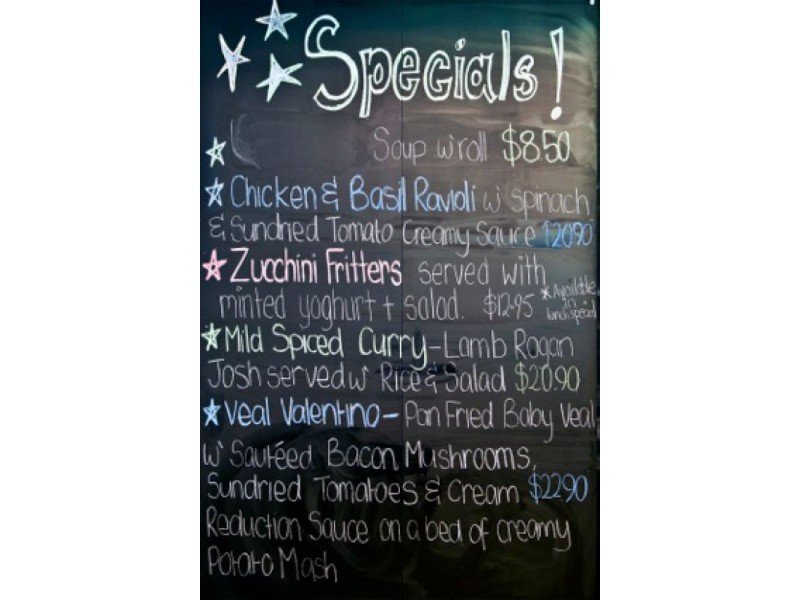 Specials!
Soup w' roll $8.50
Chicken & Basil Ravioli w' spinach
& Sundried Tomato Creamy Sauce $20.90
Zucchini Fritters served with
minted yoghurt + salad. $12.95
* Available
in
lunch special
Mild Spiced Curry - Lamb Rogan
Josh served w' Rice & Salad $20.90
Veal Valentino - Pan Fried Baby Veal
w' Sautéed Bacon, Mushrooms,
Sundried Tomatoes & Cream $22.90
Reduction Sauce on a bed of creamy
Potato Mash